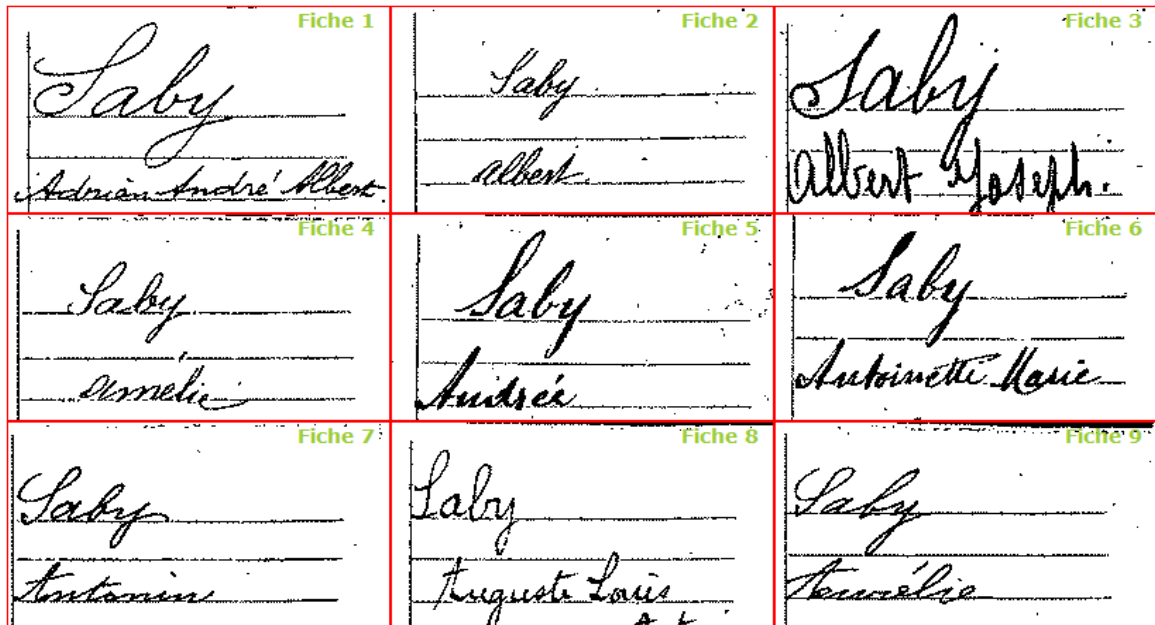 Fiche 1
Saby
Adrien André Albert
Fiche 2
Saby
Albert
Fiche 3
Saby
Albert Joseph.
Fiche 4
Saby
Amélie
Fiche 5
Saby
Andrée
Fiche 6
Saby
Antoinette Marie
Fiche 7
Saby
Antonin
Fiche 8
Saby
Auguste Louis
Fiche 9
Saby
Aurélie